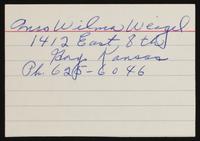 Mrs Wilma Weigel
1412 East 8th
Hays Kansas
Ph. 625-6046